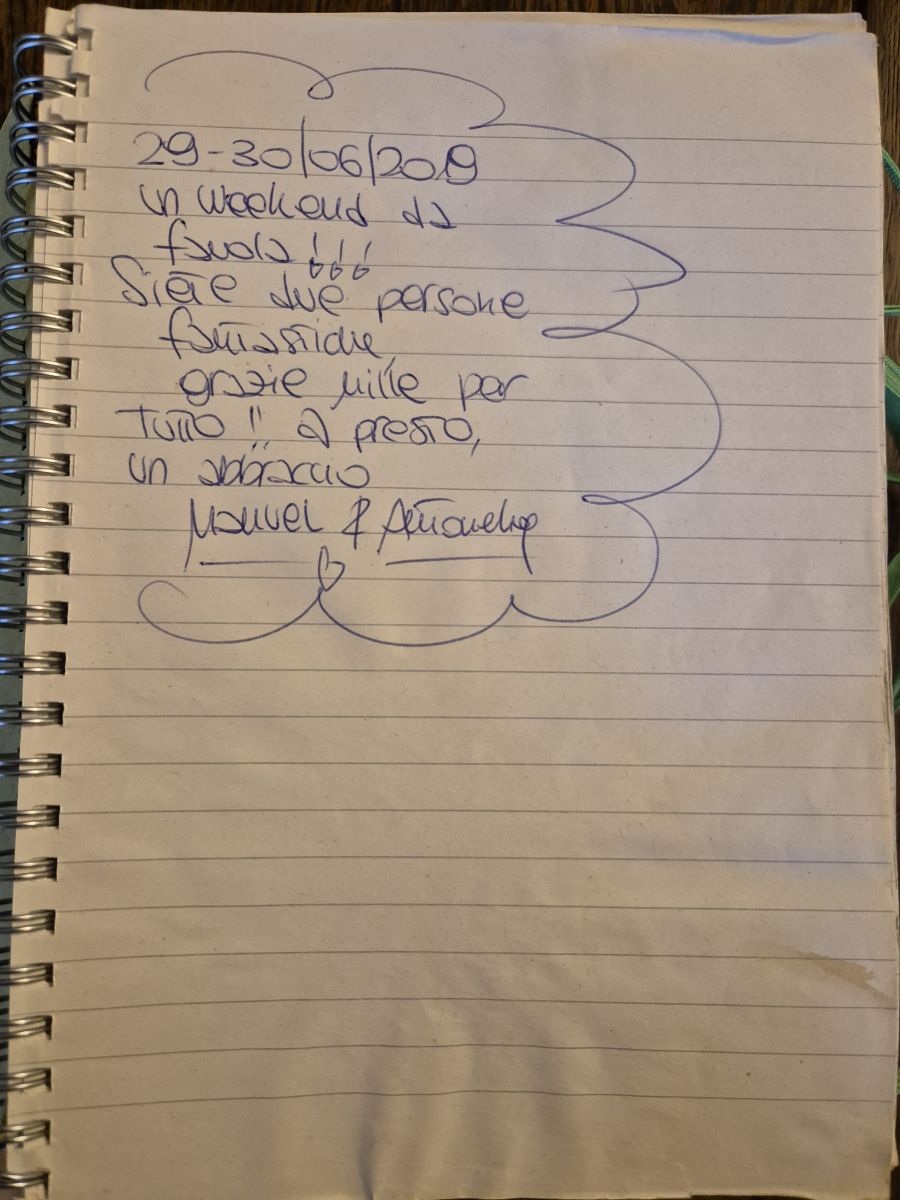 29-30/06/2019
un weekend da
favola !!!
Siete due persone
fantastiche,
grazie mille per
tutto !! a presto,
un abbraccio
Manuel &